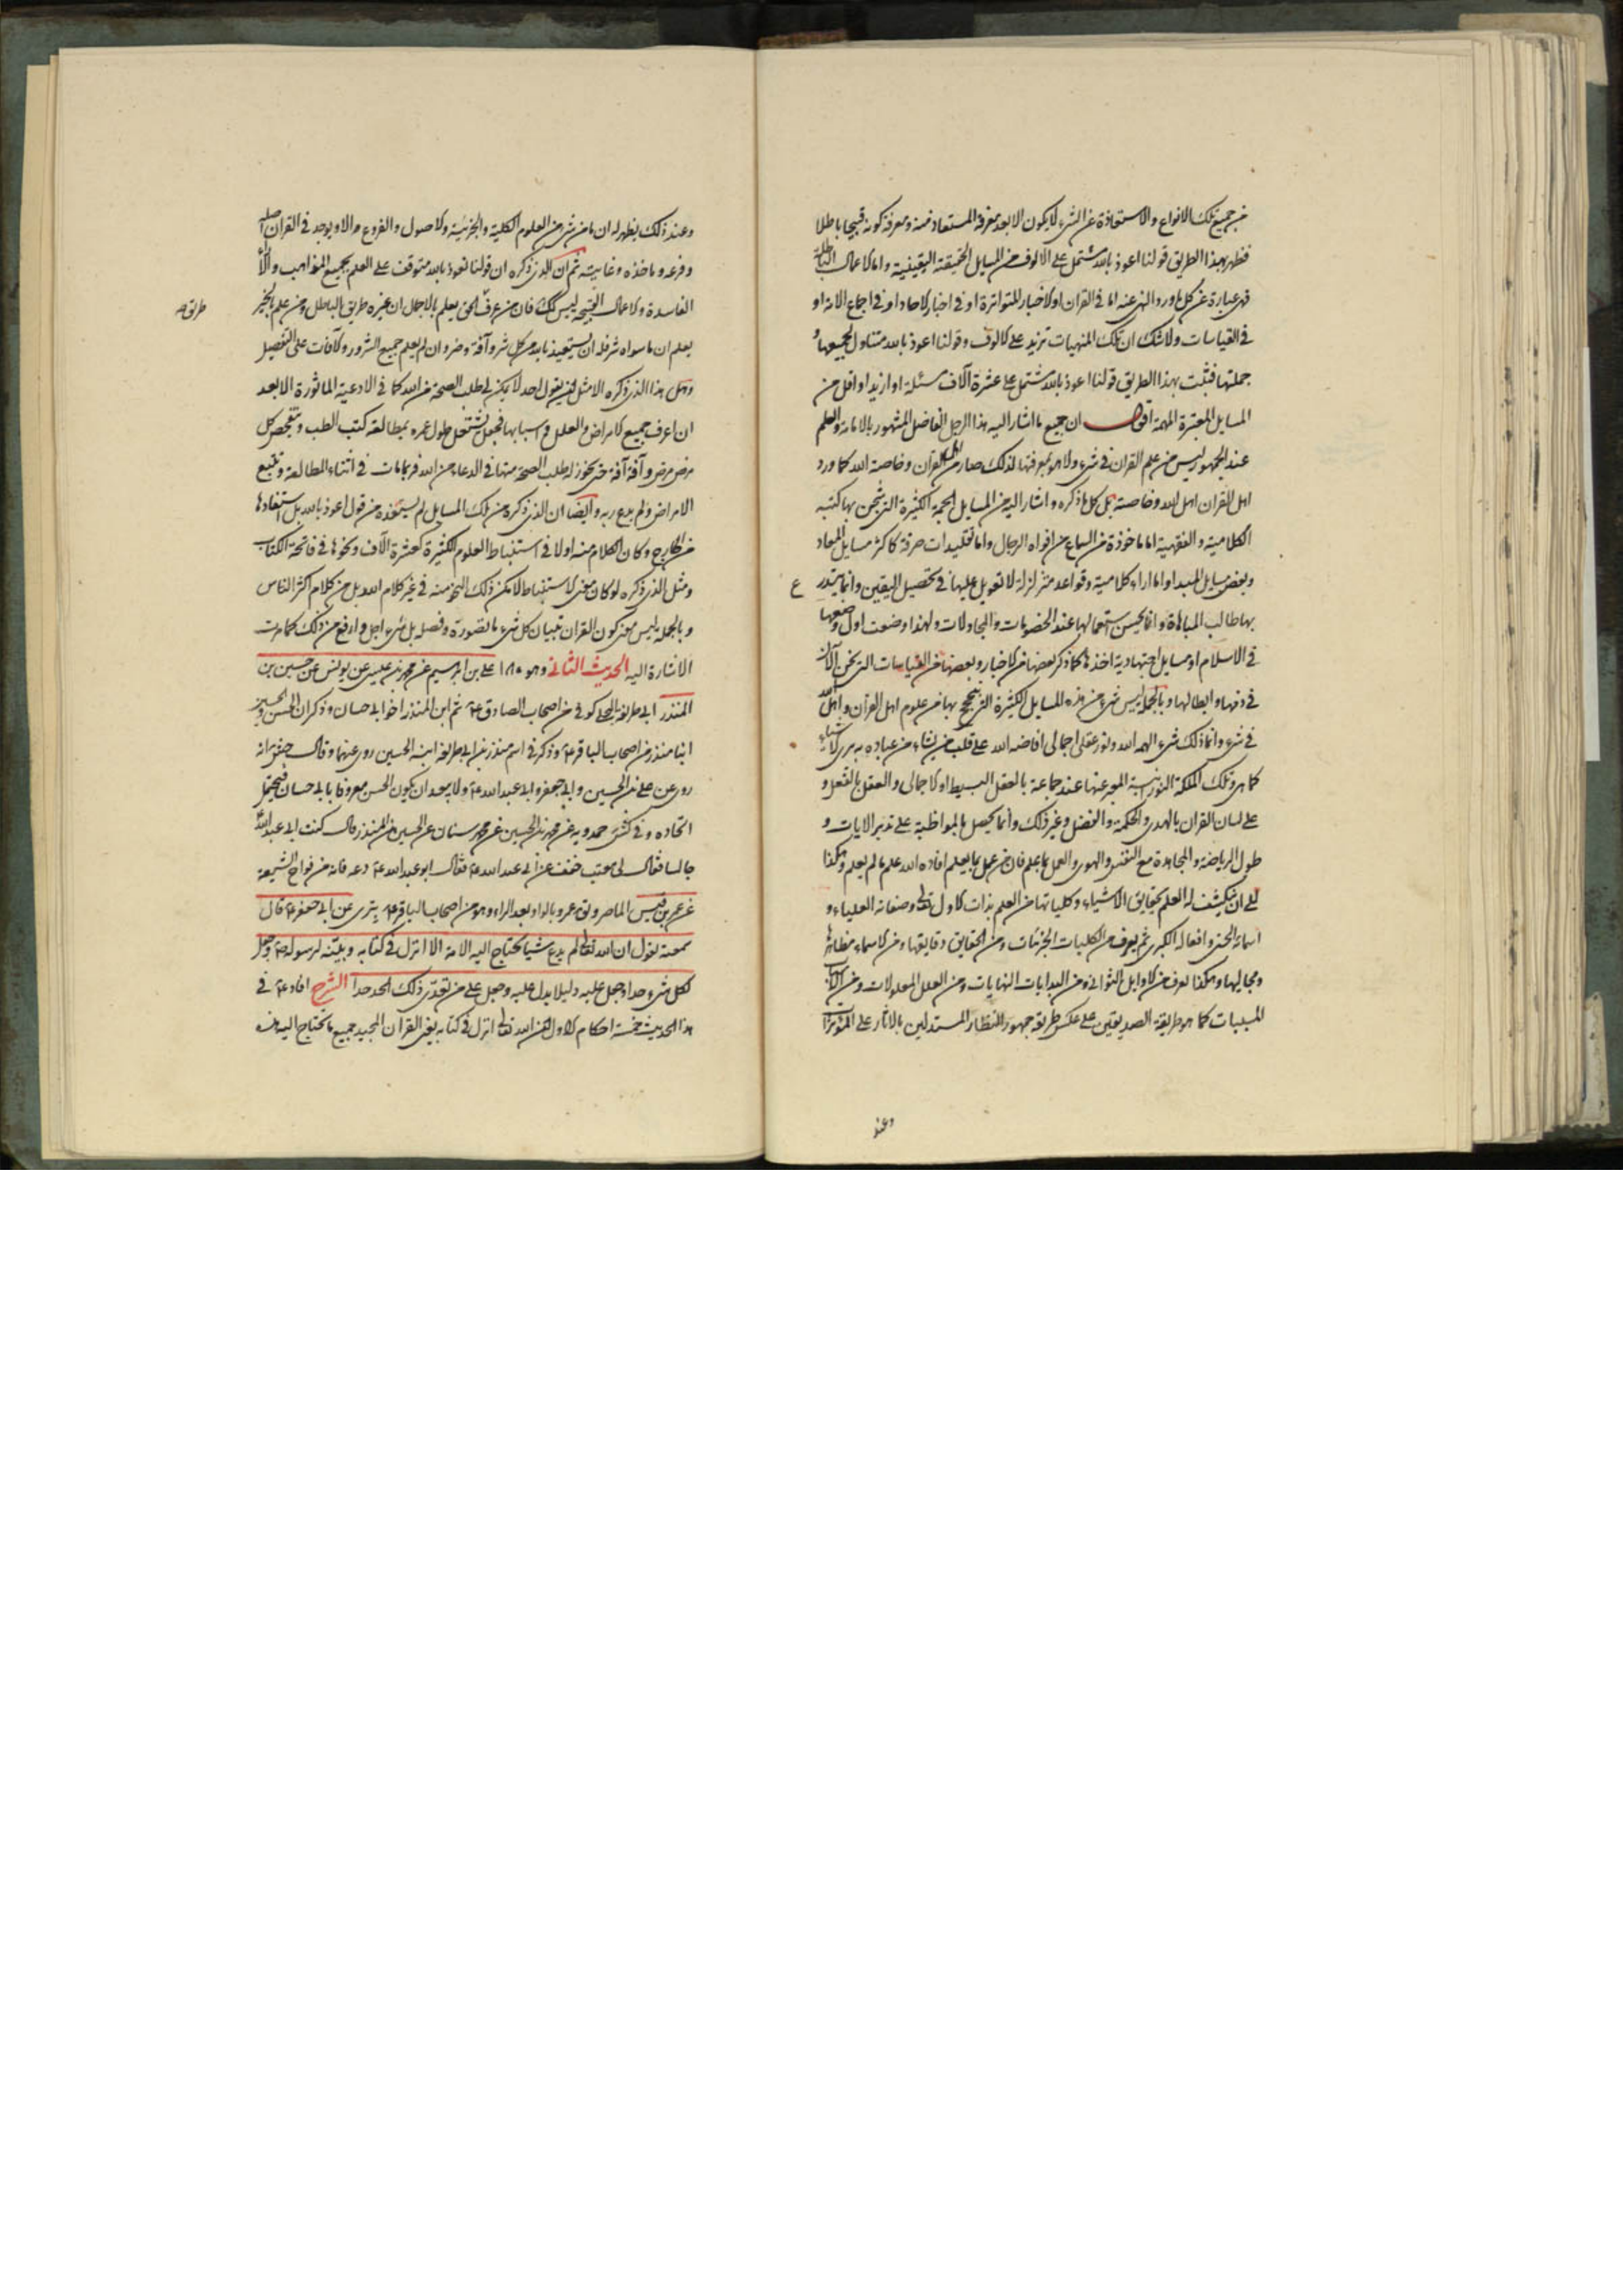 عن جميع تلك الانواع والاستعاذة عن الشيء لا يكون الا بعد معرفة المستعاذ منه ومعرفة كونه قبيحا باطلا
فظهر بهذا الطريق قولنا اعوذ بالله مشتمل على الالوف من المسايل الحقيقة اليقينية واما الاعمال الباطلة
فهي عبارة عن كل ما ورد النهي عنه اما في القران او الاخبار المتواترة او في اخبار الاحاد او في اجماع الامة او
في القياسات ولا شك ان تلك المنهيات تزيد على الالوف وقولنا اعوذ بالله متناول لجميعها و
جملتها فثبت بهذا الطريق قولنا اعوذ بالله مشتمل على عشرة آلاف مسئلة او ازيد او اقل من
المسايل المعتبرة المهمة اقول ان جميع ما اشار اليه هذا الرجل الفاضل المشهور بالامامة والعلم
عند الجمهور ليس من علم القران في شيء ولا هو بمعرفتها لذلك صار من اهل القران وخاصة الله كما ورد
اهل القران اهل الله وخاصته بل كل ما ذكره واشار اليه من المسايل الجمة الكثيرة التي شحن بها كتبه
الكلامية والفقهية اما ماخوذة من السماع من افواه الرجال واما تقليدات صرفة كاكثر مسايل المعاد
وبعض مسايل المبدا واما اراء كلامية وقواعد متزلزلة لا تعويل عليها في تحصيل اليقين وانما يتدر ع
بها طالب المباهاة وانما يحسن استعمالها عند الخصومات والمجادلات ولهذا وضعت اول وضعها
في الاسلام او مسايل اجتهادية اخذها كما ذكر بعضها من الاخبار وبعضها من القياسات التي نحن الآن
في ذمها وابطالها وبالجملة ليس شيء من هذه المسايل الكثيرة التي يتبجح بها من علوم اهل القران واهل الله
في شيء وانما ذلك شيء الهمه الله ونور عقلي اجمالي افاضه الله على قلب من يشاء من عباده به يرى الاشياء
كما هي وتلك الملكة النورية المعبر عنها عند جماعة بالعقل البسيط او الاجمالي والعقل بالفعل و
على لسان القران بالهدى والحكمة والفضل وغير ذلك وانما يحصل بالمواظبة على تدبر الايات و
طول الرياضة والمجاهدة مع النفس والهوى والعمل بما يعلم فان من عمل بما يعلم افاده الله علم ما لم يعلم وهكذا
الى ان ينكشف له العلم بحقايق الاشياء وكلياتها من العلم بذات الاول تعالى وصفاته العلياء و
اسمائه الحسنى وافعاله الكبرى ثم يعرف من الكليات الجزئيات ومن الحقايق دقايقها ومن الاسماء مظاهرها
ومجاليها وهكذا يعرف من الاوايل الثواني ومن البدايات النهايات ومن العلل المعلولات ومن الاسباب
المسببات كما هو طريقة الصديقين على عكس طريقة جمهور النظار المستدلين بالاثار على المؤثرات
وعند
وعند ذلك يظهر له ان ما من شيء من العلوم الكلية والجزئية والاصول والفروع الا ويوجد في القران اصله
وفرعه وماخذه وغايته ثم ان الذي ذكره ان قولنا نعوذ بالله متوقف على العلم بجميع المذاهب والاراء
الفاسدة والاعمال القبيحة ليس كك فان من عرف الحق يعلم بالاجمال ان غيره طريق الباطل ومن علم الخير
طريق
يعلم ان ما سواه شر فله ان يستعيذ بالله من كل شر وآفة وضر وان لم يعلم جميع الشرور والآفات على التفصيل
وهل هذا الذي ذكره الا مثل ان يقول احد لا يمكن لي طلب الصحة من الله كما في الادعية الماثورة الا بعد
ان اعرف جميع الامراض والعلل واسبابها فجعل يشتغل طول عمره بمطالعة كتب الطب ويتفحص كل
مرض مرض وآفة آفة حتى يجوز له طلب الصحة منها في الدعاء من الله فربما مات في اثناء المطالعة وتتبع
الامراض ولم يدع ربه وايضا ان الذي ذكره من تلك المسايل لم يستفده من قول اعوذ بالله بل استفادها
من الخارج وكان الكلام منه اولا في استنباط العلوم الكثيرة كعشرة آلاف ونحوها في فاتحة الكتاب
ومثل الذي ذكره لو كان معنى الاستنباط لامكن ذلك النحو منه في غير كلام الله بل من كلام اكثر الناس
وبالجملة ليس معنى كون القران تبيان كل شيء ما تصوره وفصله بل شيء اجل وارفع من ذلك كما مرت
الاشارة اليه الحديث الثاني وهو ١٨٠ علي بن ابرهيم عن محمد بن عيسى عن يونس عن حسين بن
المنذر ابي طريفة البجلي كوفي من اصحاب الصادق ع ثم ابن المنذر اخو ابي حسان وذكر ان الحسن والحسين
ابنا منذر من اصحاب الباقر ع وذكر في اسم منذر بن ابي طريفة ابنه الحسين روى عنهما وقال جش انه
روى عن علي بن الحسين وابي جعفر وابي عبد الله ع ولا يبعد ان يكون الحسن معروفا بابي حسان فيحتمل
اتحاده وفي كش حمدويه عن محمد بن الحسين عن محمد سنان عن الحسين بن المنذر قال كنت ابي عبد الله
جالسا فقال لي معتب خفف عن ابي عبد الله ع فقال ابو عبد الله ع دعه فانه من فراخ الشيعة
عن عمر بن قيس الماصر وق عمرو بالواو بعد الراء وهو من اصحاب الباقر ع بتري عن ابي جعفر ع قال
سمعته يقول ان الله تعالى لم يدع شيئا يحتاج اليه الامة الا انزل في كتابه وبينه لرسوله ص وجعل
لكل شيء حدا وجعل عليه دليلا يدل عليه وجعل على من تعدى ذلك الحد حدا الشرح افاد ع في
هذا الحديث خمسة احكام الاول ان الله تعالى انزل في كتابه يعني القران المجيد جميع ما تحتاج اليه